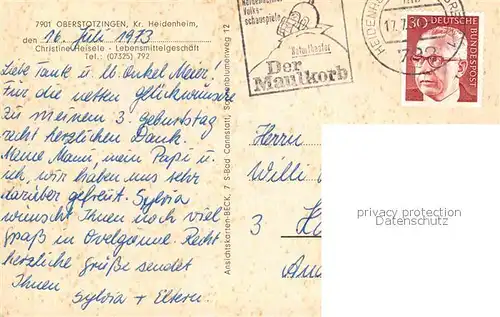 7901 OBERSTOTZINGEN, Kr. Heidenheim,
den 16. Juli 1973
Christine Heisele - Lebensmittelgeschäft
Tel.: (07325) 792
Liebe Tante u. lb. Onkel Meier!
Für die netten Glückwünsche
zu meinem 3. Geburtstag
recht herzlichen Dank.
Meine Mami, mein Papi u.
ich, wir haben uns sehr
darüber gefreut. Sylvia
wünscht Ihnen noch viel
Spaß in Ovelgönne. Recht
herzliche Grüße sendet
Ihnen
Sylvia + Eltern.
Ansichtskarten-BECK, 7 S-Bad Cannstatt, Sonnenblumenweg 12
Heidenheimer
Volks-
schauspiele
Naturtheater
Der
Maulkorb
HEIDENHE
17.7.
792
30
DEUTSCHE
BUNDESPOST
Herrn
Willi
3
privacy protection
Datenschutz